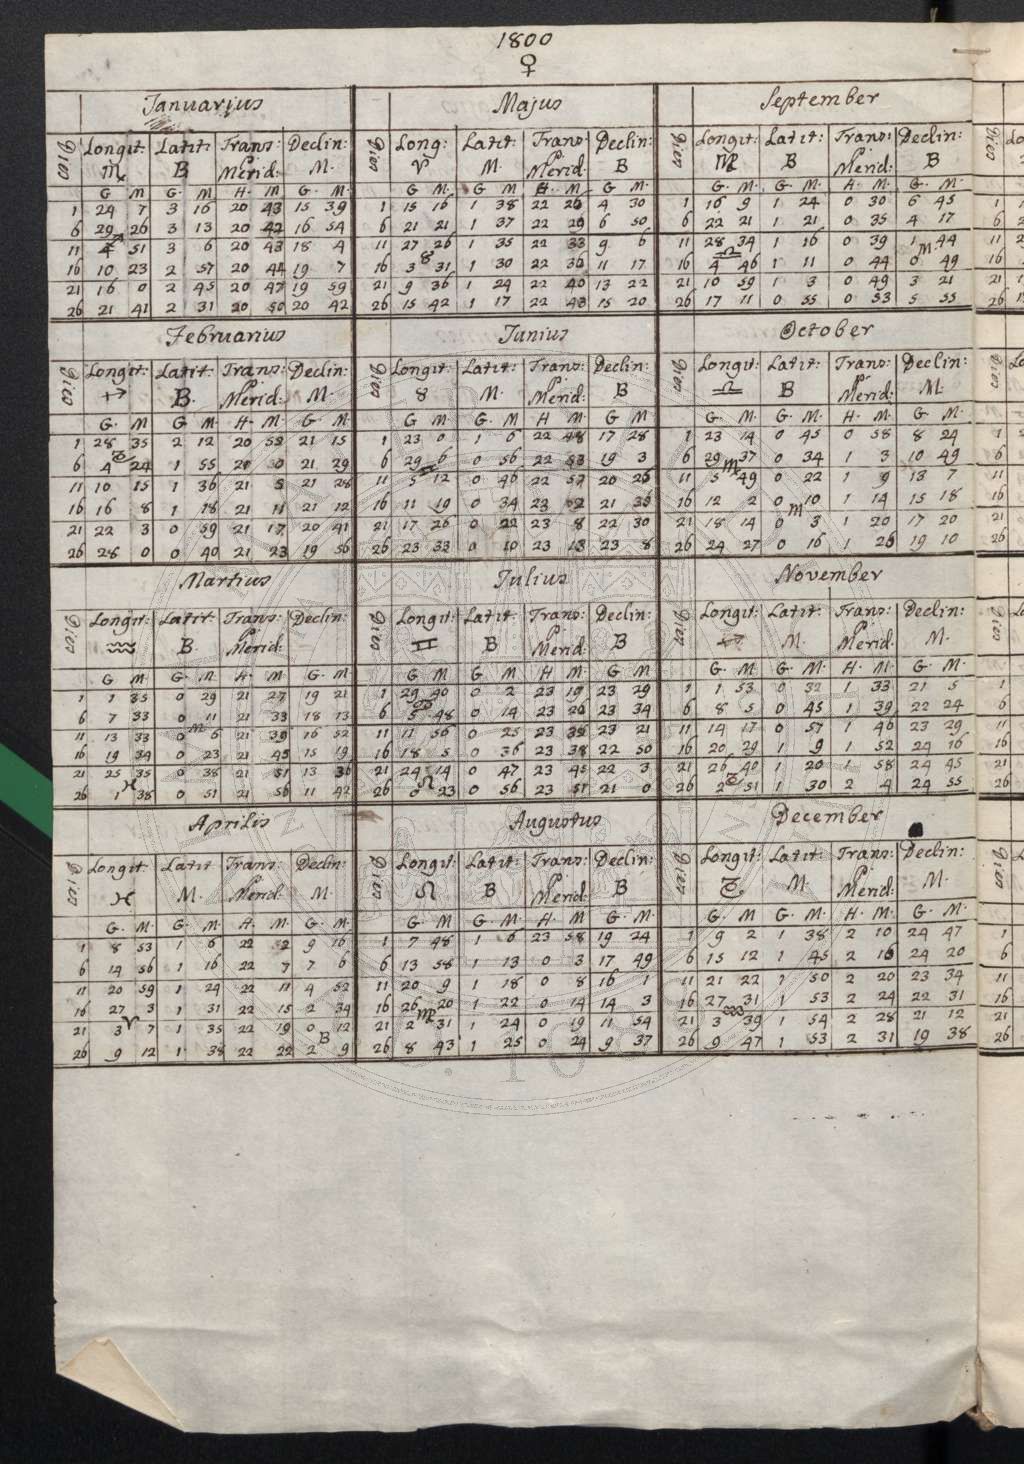 1800
♀
Januarius
Dies Longit: Latit: Trans: Declin:
♏ B P. Merid: M.
G M G M H. M G. M.
1 24 7 3 16 20 43 15 39
6 29 26 3 13 20 42 16 54
♐
11 4 51 3 6 20 43 18 4
16 10 23 2 57 20 44 19 7
21 16 0 2 45 20 47 19 59
26 21 41 2 31 20 50 20 42
Februarius
Dies Longit: Latit: Trans: Declin:
♐ B. P. Merid: M.
G. M G M H. M G. M
1 28 35 2 12 20 55 21 15
♑
6 4 24 1 55 21 0 21 29
11 10 15 1 36 21 5 21 28
16 16 8 1 18 21 11 21 12
21 22 3 0 59 21 17 20 41
26 28 0 0 40 21 23 19 56
Martius
Dies Longit: Latit: Trans: Declin:
♒ B. P. Merid:
G M G. M H. M G. M
1 1 35 0 29 21 27 19 21
6 7 33 0 11 21 33 18 13
M
11 13 33 0 6 21 39 16 52
16 19 34 0 23 21 45 15 19
21 25 35 0 38 21 51 13 36
♓
26 1 38 0 51 21 56 11 42
Aprilis
Dies Longit Latit Trans: Declin:
♓ M. P. Merid: M.
G. M. G. M. H. M. G. M.
1 8 53 1 6 22 2 9 16
6 14 56 1 16 22 7 7 6
11 20 59 1 24 22 11 4 52
16 27 3 1 31 22 15 2 34
♈
21 3 7 1 35 22 19 0 12
B
26 9 12 1 38 22 22 2 9
Majus
Dies Long: Latit: Trans: Declin:
♈ M. P. Merid: B
G M. G M H. M G M.
1 15 16 1 38 22 26 4 30
6 21 21 1 37 22 29 6 50
11 27 26 1 35 22 33 9 6
♉
16 3 31 1 30 22 36 11 17
21 9 36 1 24 22 40 13 22
26 15 42 1 17 22 43 15 20
Junius
Dies Longit: Latit: Trans: Declin:
♉ M. P. Merid: B
G M. G. M H M G M
1 23 0 1 6 22 48 17 28
6 29 6 0 56 22 53 19 3
♊
11 5 12 0 46 22 57 20 26
16 11 19 0 34 23 2 21 35
21 17 26 0 22 23 8 22 30
26 23 33 0 10 23 13 23 8
Julius
Dies Longit: Latit: Trans: Declin:
♊ B P. Merid: B
G M G M H M G M
1 29 40 0 2 23 19 23 29
♋
6 5 48 0 14 23 26 23 34
11 11 56 0 25 23 32 23 21
16 18 5 0 36 23 38 22 50
21 24 14 0 47 23 45 22 3
♌
26 0 23 0 56 23 51 21 0
Augustus
Dies Longit: Latit: Trans: Declin:
♌ B P. Merid: B
G. M G M H M G M
1 7 48 1 6 23 58 19 24
6 13 58 1 13 0 3 17 49
11 20 9 1 18 0 8 16 1
16 26 20 1 22 0 14 14 3
♍
21 2 31 1 24 0 19 11 54
26 8 43 1 25 0 24 9 37
September
Dies Longit: Latit: Trans: Declin:
♍ B P. Merid: B
G. M. G. M. H. M. G. M.
1 16 9 1 24 0 30 6 45
6 22 21 1 21 0 35 4 17
11 28 34 1 16 0 39 1 44
♎ M
16 4 46 1 11 0 44 0 49
21 10 59 1 3 0 49 3 21
26 17 11 0 55 0 53 5 55
October
Dies Longit: Latit: Trans: Declin:
♎ B P. Merid: M.
G. M. G. M. H. M. G. M.
1 23 14 0 45 0 58 8 24
6 29 37 0 34 1 3 10 49
♏
11 5 49 0 22 1 9 13 7
16 12 2 0 10 1 14 15 18
M
21 18 14 0 3 1 20 17 20
26 24 27 0 16 1 26 19 10
November
Dies Longit: Latit: Trans: Declin:
♐ M. P. Merid: M.
G. M G. M. H. M G. M
1 1 53 0 32 1 33 21 5
6 8 5 0 45 1 39 22 24
11 14 17 0 57 1 46 23 29
16 20 29 1 9 1 52 24 16
21 26 40 1 20 1 58 24 45
♑
26 2 51 1 30 2 4 24 55
December
Dies Longit: Latit: Trans: Declin:
♑ M. P. Merid: M.
G. M G. M. H. M. G. M.
1 9 2 1 38 2 10 24 47
6 15 12 1 45 2 16 24 20
11 21 22 1 50 2 20 23 34
16 27 31 1 53 2 24 22 31
♒
21 3 39 1 54 2 28 21 12
26 9 47 1 53 2 31 19 38